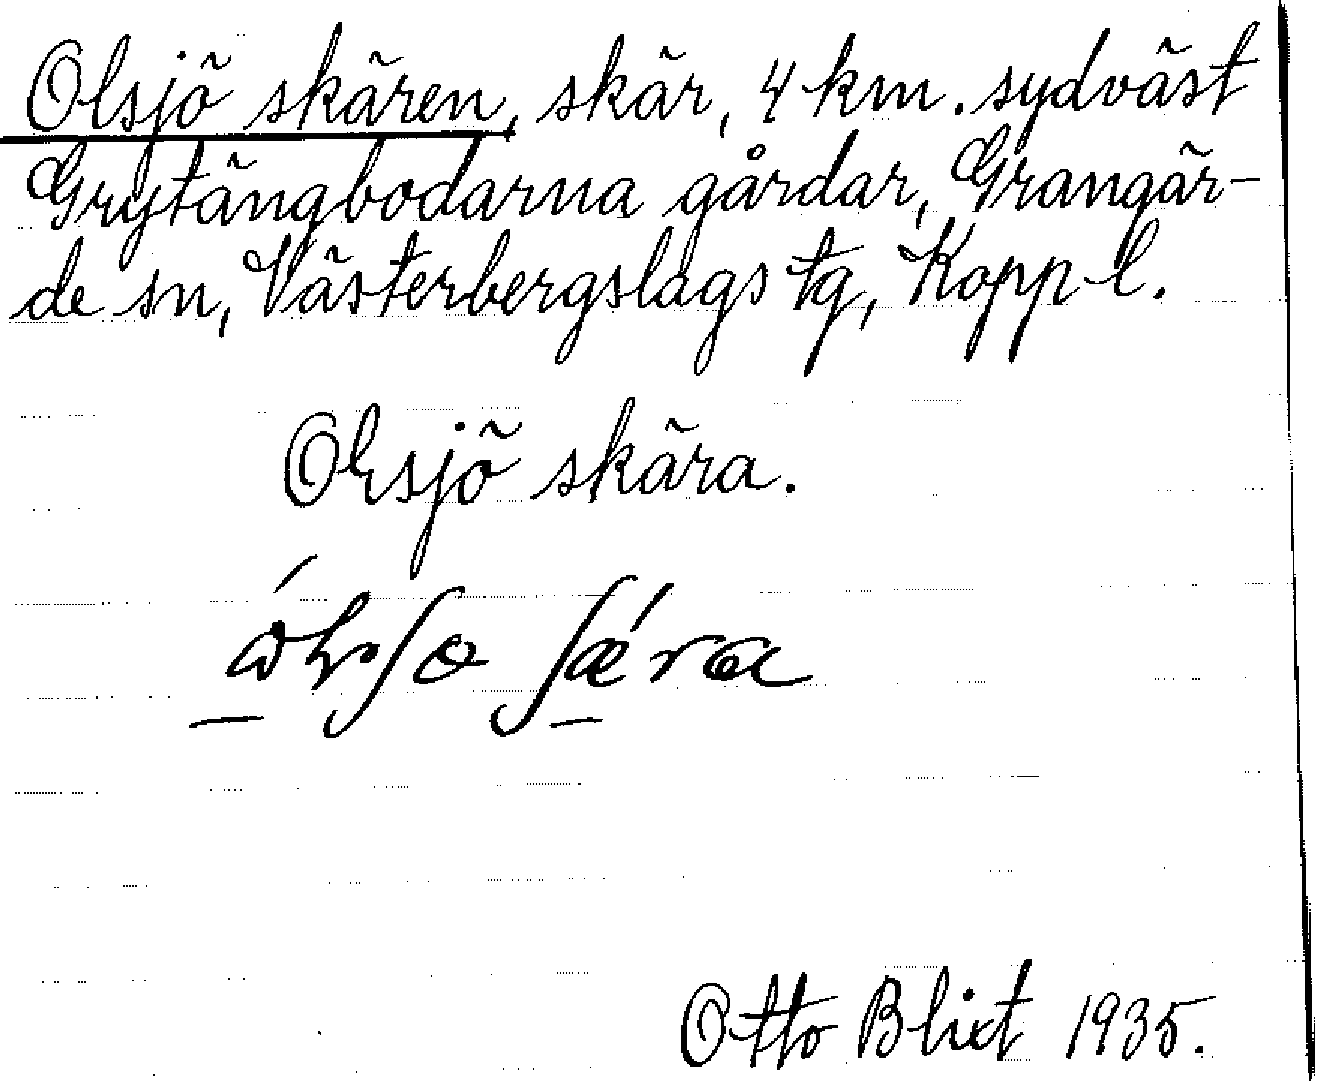 Olsjö skären, skär, 4 km. sydväst
Grytängbodarna gårdar, Grangär-
de sn, Västerbergslags tg, Kopp l.
Olsjö skära.
Otto Blixt 1935.